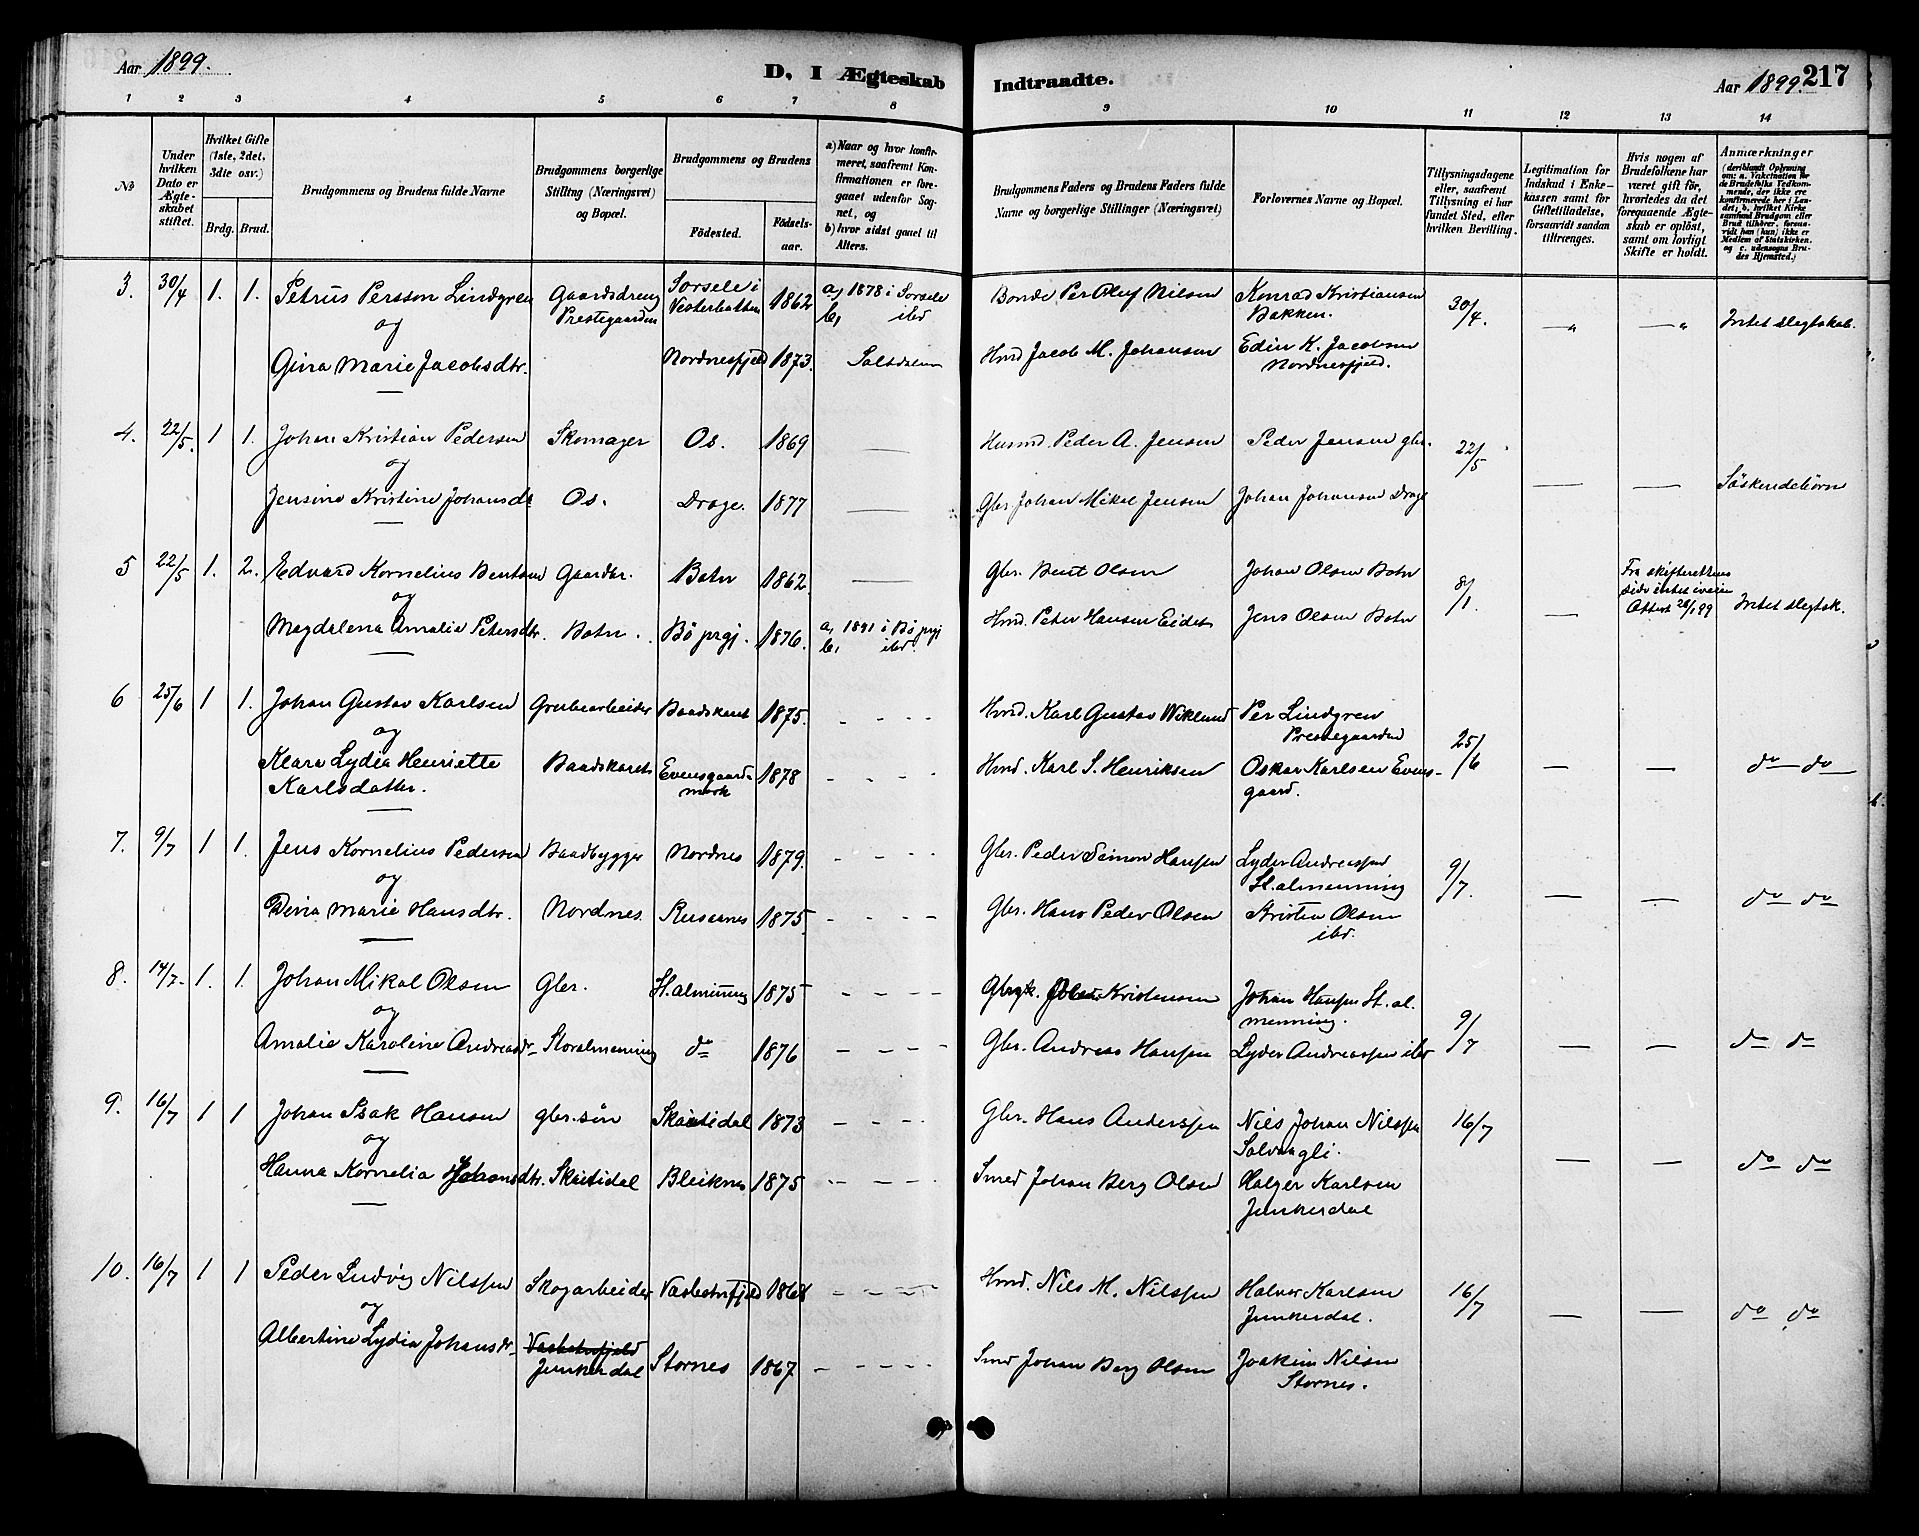 Aar 1899.
D, I Ægteskab
Indtraadte.
Aar 1899. 217
1 2 3 4 5 6 7 8 9 10 11 12 13 14
No
Under hvilken Dato er Ægteskabet stiftet.
Hvilket Gifte (1ste, 2det, 3die osv.)
Brdg. Brud.
Brudgommens og Brudens fulde Navne
Brudgommens borgerlige Stilling (Næringsvei) og Bopæl.
Brudgommens og Brudens
Fødested.
Fødselsaar.
a) Naar og hvor konfirmeret, saafremt Konfirmationen er foregaaet udenfor Sognet, og
b) hvor sidst gaaet til Alters.
Brudgommens Faders og Brudens Faders fulde Navne og borgerlige Stillinger (Næringsvei)
Forlovernes Navne og Bopæl.
Tillysningsdagene eller, saafremt Tillysning ei har fundet Sted, efter hvilken Bevilling.
Legitimation for Indskud i Enkekassen samt for Giftetilladelse, forsaavidt saadan tiltrænges.
Hvis nogen af Brudefolkene har været gift før, hvorledes da det foregaaende Ægteskab er opløst, samt om lovligt Skifte er holdt.
Anmærkninger (deriblandt Oplysning om: a. Vakcination for de Brudefolks Vedkommende, der ikke ere konfirmerede her i Landet; b. hvilket Kirkesamfund Brudgom eller Brud tilhører, forsaavidt han (hun) ikke er Medlem af Statskirken, og c. udensogns Brudes Hjemsted.)
3. 30/4 1. 1. Petrus Persson Lindgren Gaardsdreng Prestegaarden Sorsele i Vesterbotten 1862 a, 1878 i Sorsele b, ibd Bonde Per Olof Nilsen Konrad Kristiansen Bakken. 30/4. — " — " Intet slegtskab.
og
Gina Marie Jacobsdtr. Nordnesfjeld 1873. Saltdalen Hmd Jacob M. Johansen Edin K. Jacobsen Nordnesfjeld.
4. 22/5. 1 1. Johan Kristian Pedersen Skomager Os. 1869 — Husmd. Peder A. Jensen Peder Jensen gbr. 22/5
og
Jensine Kristine Johansdtr Os. Drage. 1877 — Gbr. Johan Mikal Jensen Johan Johansen Drage — — Söskendebörn
5 22/5 1. 2. Edvard Kornelius Bentsen Gaardbr. Botn 1862 — Gbr. Bent Olsen Johan Olsen Botn 8/1. — Fra skifterettens side intet iveien Attest 28/1 99 Intet slegtsk.
og
Magdalena Amalie Petersdtr. Botn. Bö prgj. 1876. a, 1891 i Bö prgj b, ibd. Hmd. Peter Hansen Eidet Jens Olsen Botn
6 25/6 1 1. Johan Gustav Karlsen Grubearbeider Baadskaret 1875. - - - - Hmd. Karl Gustav Wiklund Per Lindgren Prestegaarden 25/6 — — do do
og
Klara Lydia Henriette Karlsdatter. Baadskaret Evensgaardmark 1878 - - - - Hmd. Karl S. Henriksen Oskar Karlsen Evensgaard.
7. 9/7 1 1. Jens Kornelius Pedersen Baadbygger Nordnes 1879. - - - - Gbr. Peder Simon Hansen Lyder Andreassen St. almenning 9/7. — — do do
og
Dina Marie Hansdtr. Nordnes. Rusaanes 1875. - - - - Gbr. Hans Peder Olsen Kristen Olsen ibd.
8. 14/7. 1. 1. Johan Mikal Olsen Gbr. St. almenning 1875 - - - - Ole Kristensen Johan Hansen St. almenning. 9/7 — — do do
og
Amalie Karoline Andreasdtr. Storalmenning do 1876 - - - - Gbr. Andreas Hansen Lyder Andreassen ibd
9. 16/7 1 1 Johan Isak Hansen gbr. sön Skaitidal 1873 - - - - Gbr. Hans Anderssen Nils Johan Nilssen Solvaagli. 16/7 — — do do
og
Hanna Kornelia Johansdtr. Skaitidal Bleiknes 1875 - - - - Smed Johan Berg Olsen Holger Karlsen Junkerdal
10. 16/7 1 1 Peder Ludvig Nilssen Skogarbeider Vasbotnfjeld 1868 - - - - Hmd. Nils M. Nilssen Halvor Karlsen Junkerdal. 16/7 — — do do
og
Albertine Lydia Johansdtr. Vasbotnfjeld Junkerdal Stornes 1867 - - - - Smd Johan Berg Olsen Joakim Nilsen Stornes.